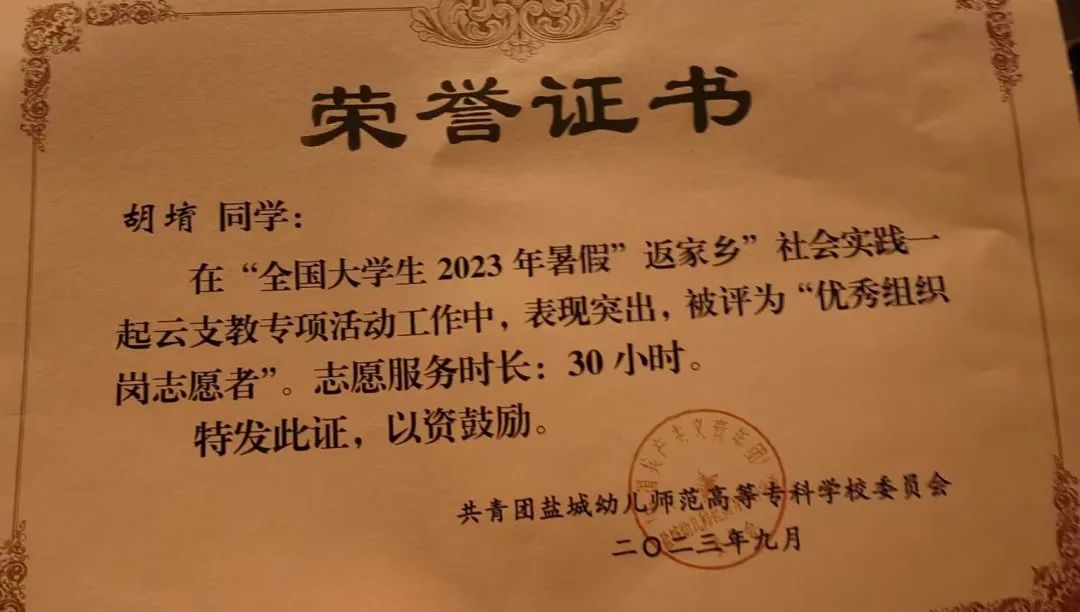 荣誉证书
胡堉 同学：
在“全国大学生 2023 年暑假”返家乡”社会实践一
起云支教专项活动工作中，表现突出，被评为“优秀组织
岗志愿者”。志愿服务时长：30 小时。
特发此证，以资鼓励。
共青团盐城幼儿师范高等专科学校委员会
二〇二三年九月